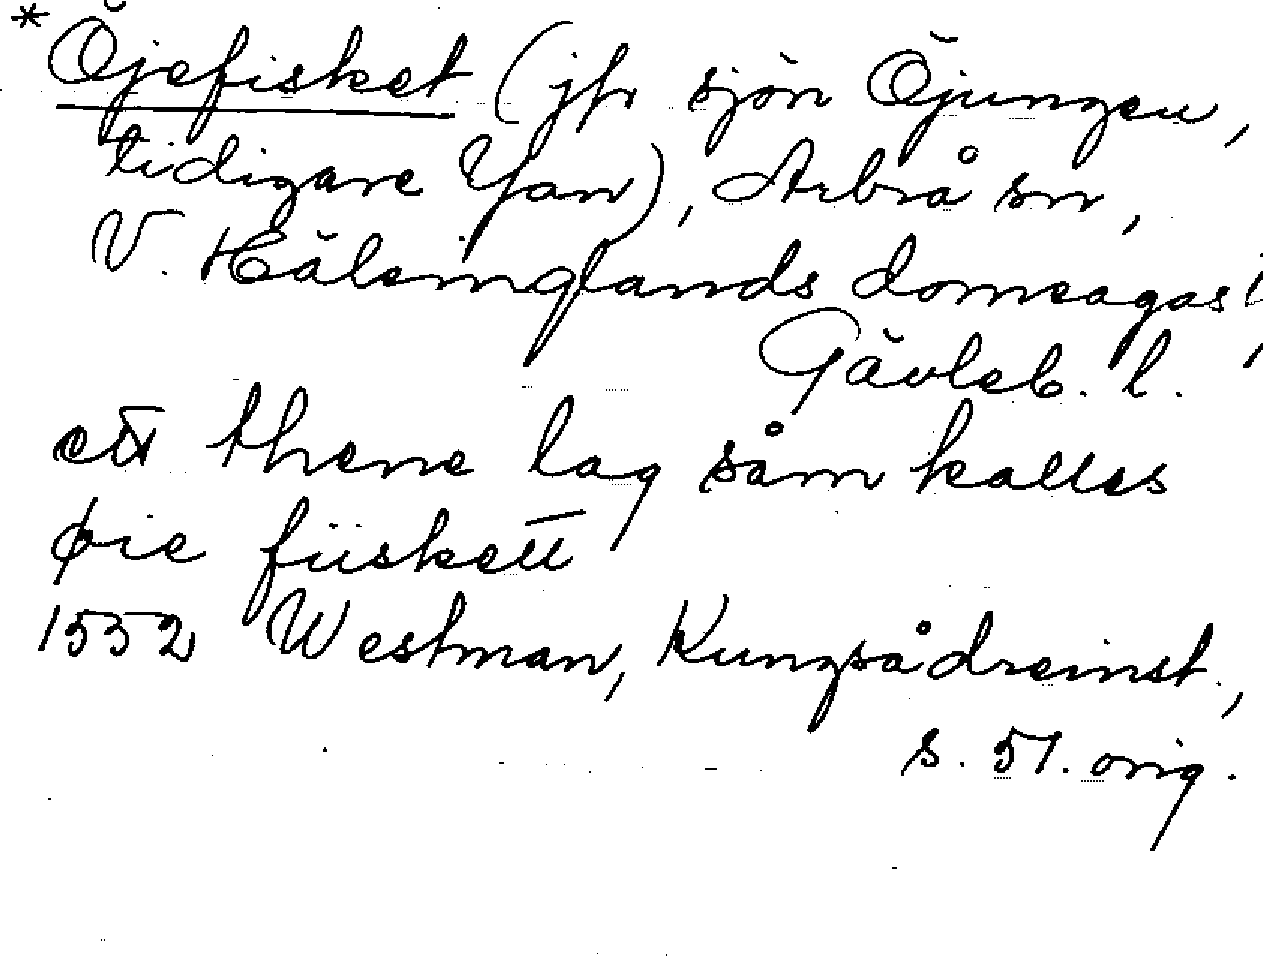 *Öjefisket (jfr sjön Öjungen,
tidigare Yan), Arbrå sn,
V. Hälsinglands domsagas
Gävleb. l.
ett thene lag såm kalles
øie fiiskett
1552 Westman, Kungsådreinst.,
s. 51. orig.